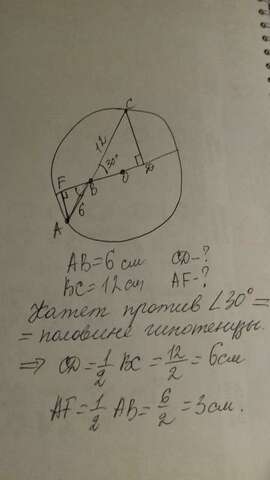 C
12
30°
F
B
O
D
6
A
AB=6 см CD-?
BC=12 см AF-?
Катет против ∠30°=
= половине гипотенузы.
⇒ CD=1/2 BC=12/2=6см
AF=1/2 AB=6/2=3см.